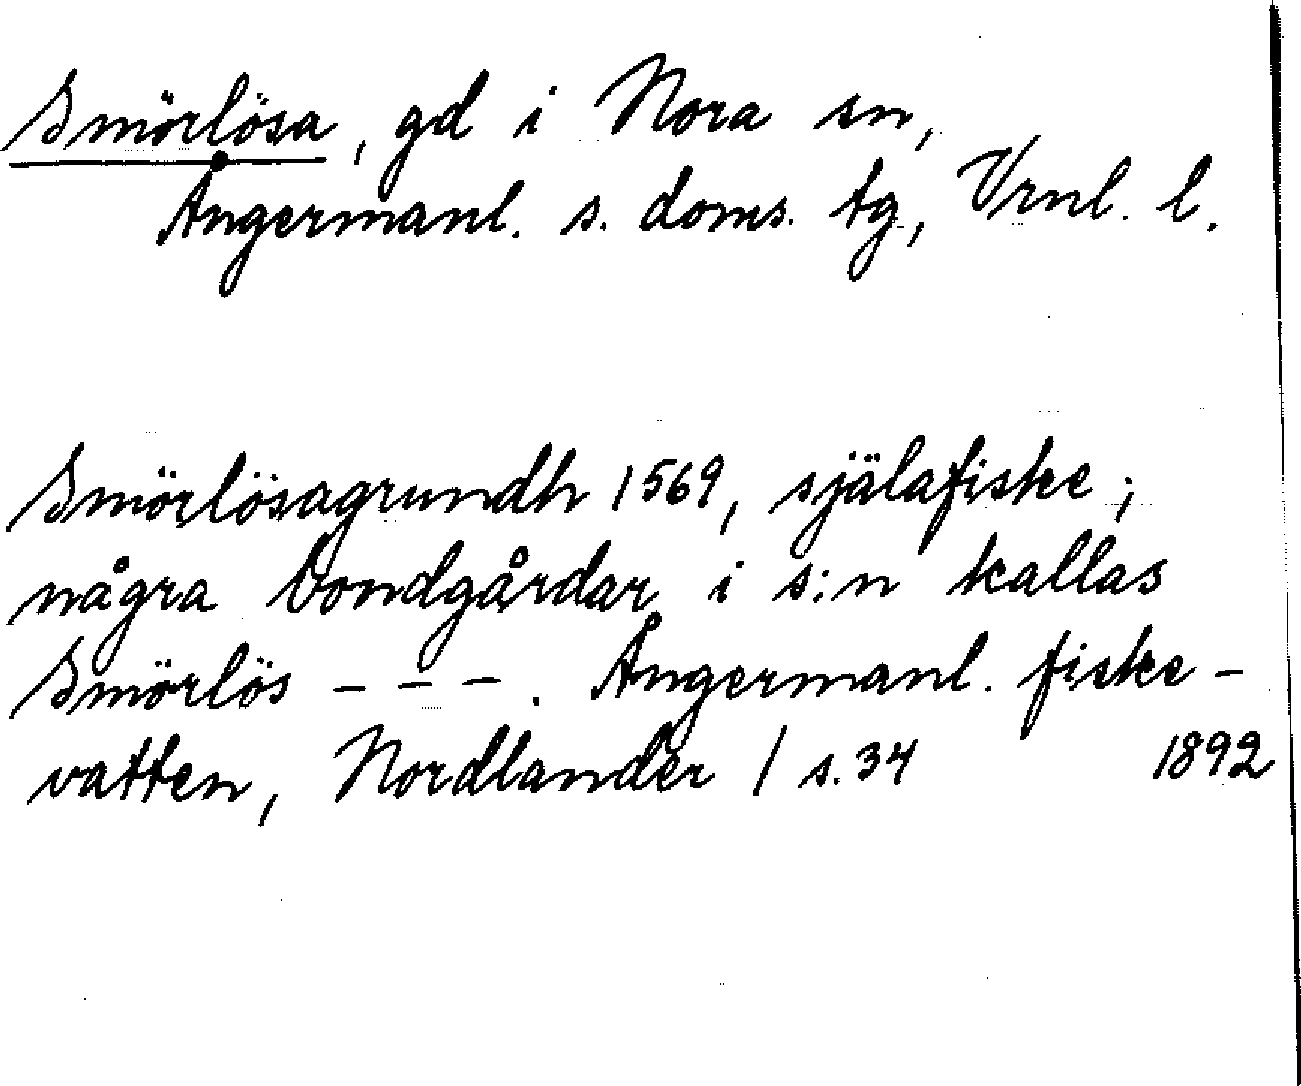 Smörlösa, gd i Nora sn,
Ångermanl. s. doms. tg, Vrnl. l.
Smörlösagrundh 1569, själafiske;
några bondgårdar i s:n kallas
Smörlös - - - . Ångermanl. fiske-
vatten, Nordlander / s.34 1892